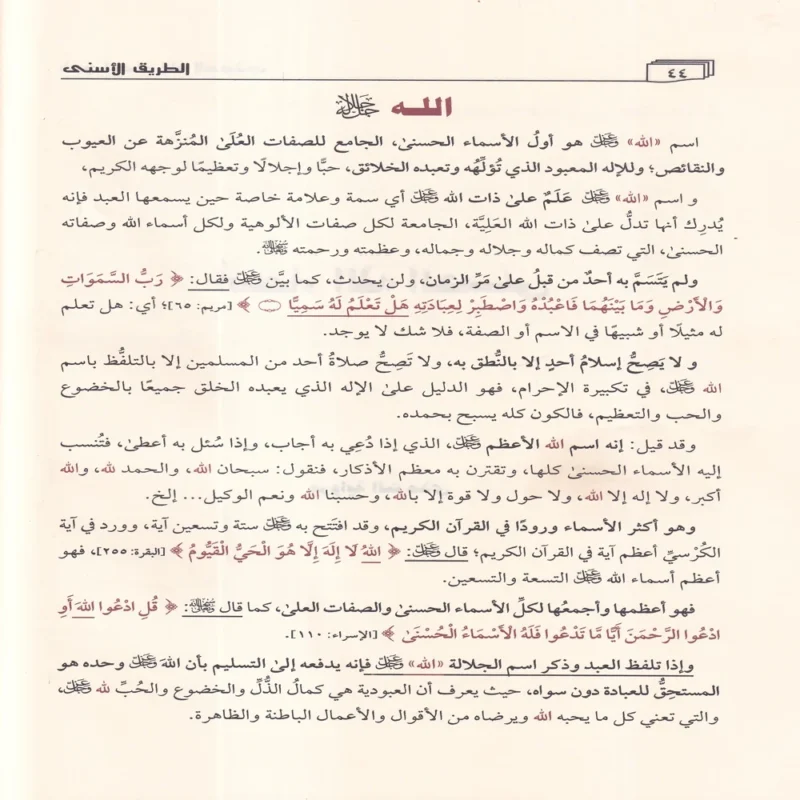 ٤٤
الطريق الأسنى
الله ﷻ
اسم «الله» ﷻ هو أولُ الأسماء الحسنىٰ، الجامع للصفات العُلَىٰ المُنزَّهة عن العيوب
والنقائص؛ وللإله المعبود الذي تُؤلِّهُه وتعبده الخلائق، حبًّا وإجلالًا وتعظيمًا لوجهه الكريم،
و اسم «الله» ﷻ عَلَمٌ علىٰ ذات الله ﷻ أي سمة وعلامة خاصة حين يسمعها العبد فإنه
يُدرِك أنها تدلُّ علىٰ ذات الله العَلِيَّة، الجامعة لكل صفات الألوهية ولكل أسماء الله وصفاته
الحسنىٰ، التي تصف كماله وجلاله وجماله، وعظمته ورحمته ﷻ.
ولم يَتَسَمَّ به أحدٌ من قبلُ علىٰ مَرِّ الزمان، ولن يحدث، كما بيَّن ﷻ فقال: ﴿ رَبُّ السَّمَوَاتِ
وَالْأَرْضِ وَمَا بَيْنَهُمَا فَاعْبُدْهُ وَاصْطَبِرْ لِعِبَادَتِهِ هَلْ تَعْلَمُ لَهُ سَمِيًّا ﴾ [مريم: ٦٥]؛ أي: هل تعلم
له مثيلًا أو شبيهًا في الاسم أو الصفة، فلا شك لا يوجد.
و لا يَصِحُّ إسلامُ أحدٍ إلا بالنُّطق به، ولا تَصِحُّ صلاةُ أحد من المسلمين إلا بالتلفُّظ باسم
الله ﷻ، في تكبيرة الإحرام، فهو الدليل علىٰ الإله الذي يعبده الخلق جميعًا بالخضوع
والحب والتعظيم، فالكون كله يسبح بحمده.
وقد قيل: إنه اسم الله الأعظم ﷻ، الذي إذا دُعِي به أجاب، وإذا سُئل به أعطىٰ، فتُنسب
إليه الأسماء الحسنىٰ كلها، وتقترن به معظم الأذكار، فنقول: سبحان الله، والحمد لله، والله
أكبر، ولا إله إلا الله، ولا حول ولا قوة إلا بالله، وحسبنا الله ونعم الوكيل... إلخ.
وهو أكثر الأسماء ورودًا في القرآن الكريم، وقد افتَتح به ﷻ ستة وتسعين آية، وورد في آية
الكُرْسيِّ أعظم آية في القرآن الكريم؛ قال ﷻ: ﴿ اللهُ لَا إِلَهَ إِلَّا هُوَ الْحَيُّ الْقَيُّومُ ﴾ [البقرة: ٢٥٥]، فهو
أعظم أسماء الله ﷻ التسعة والتسعين.
فهو أعظمها وأجمعُها لكلِّ الأسماء الحسنىٰ والصفات العلىٰ، كما قال ﷻ: ﴿ قُلِ ادْعُوا اللهَ أَوِ
ادْعُوا الرَّحْمَنَ أَيًّا مَّا تَدْعُوا فَلَهُ الْأَسْمَاءُ الْحُسْنَىٰ ﴾ [الإسراء: ١١٠].
وإذا تلفظ العبد وذكر اسم الجلالة «الله» ﷻ فإنه يدفعه إلىٰ التسليم بأن اللهَ ﷻ وحده هو
المستحِقُّ للعبادة دون سواه، حيث يعرف أن العبودية هي كمالُ الذُّلِّ والخضوع والحُبِّ لله ﷻ،
والتي تعني كل ما يحبه الله ويرضاه من الأقوال والأعمال الباطنة والظاهرة.